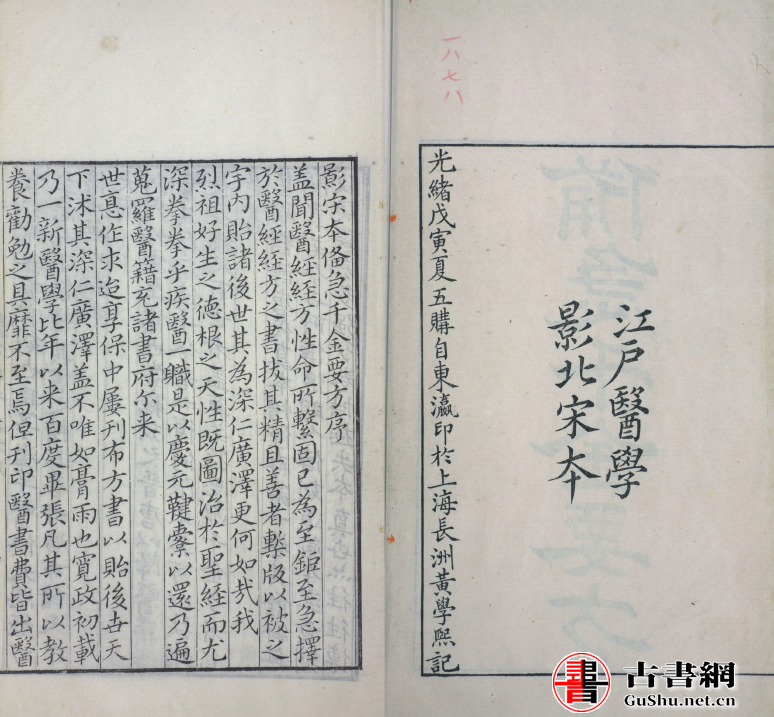 一八七八
江戶醫學
影北宋本
光緒戊寅夏五購自東瀛印於上海長洲黃學熙記
影宋本備急千金要方序
蓋聞醫經經方性命所繫固已為至鉅至急擇
於醫經經方之書拔其精且善者槧版以被之
宇內貽諸後世其為深仁廣澤更何如哉我
烈祖好生之德根之天性既圖治於聖經而尤
深拳拳乎疾醫一職是以慶元鞬櫜以還乃遍
蒐羅醫籍充諸書府尒来
世悳作求迨享保中屢刊布方書以貽後世天
下沐其深仁廣澤盖不唯如膏雨也寬政初載
乃一新醫學比年以来百度畢張凡其所以教
養勸勉之具靡不至焉但刊印醫書費皆出醫
古書網
GuShu.net.cn